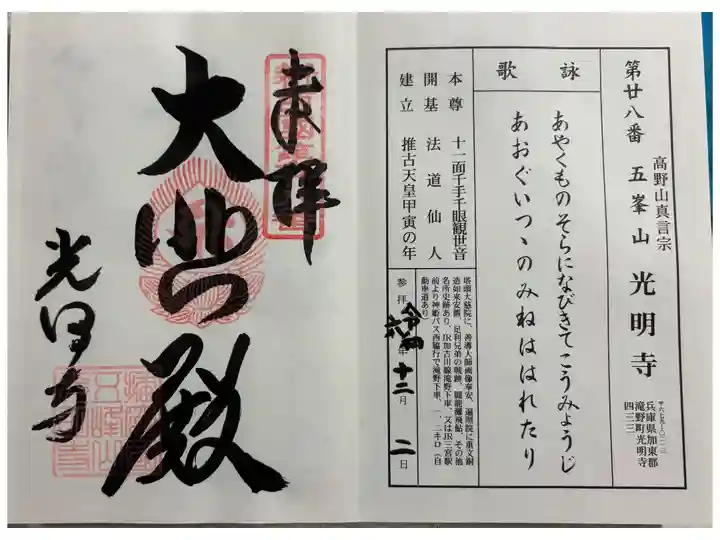 第廿八番
高野山真言宗
五峯山 光明寺
兵庫県加東郡
滝野町光明寺
四三三
詠歌
あやくものそらになびきてこうみょうじ
あおぐいつゝのみねははれたり
本尊 十一面千手千眼観世音
開基 法道仙人
建立 推古天皇甲寅の年
塔頭大慈院に、善導大師画像奉安、遍照院に重文銅
造如来安置、足利兄弟の戦跡、闘龍灘飛鮎、その他
名所史跡あり、JR加古川線滝野下車、又はJR三宮駅
前より神姫バス西脇行で滝野下車、一、二キロ（自
動車道あり）
参拝 令和六年 十二月 二日
奉拝
大悲殿
光明寺